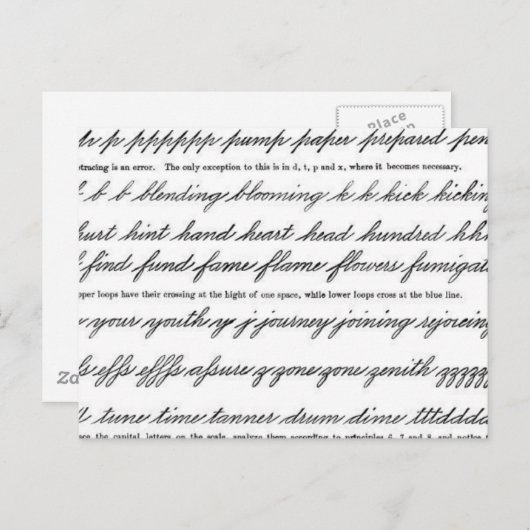 Place
p pppppp pump paper prepared pen
tracing is an error. The only exception to this is in d, t, p and x, where it becomes necessary.
b b blending blooming k k kick kicking
hurt hint hand heart head hundred hhh
find fund fame flame flowers fumigat
pper loops have their crossing at the hight of one space, while lower loops cross at the blue line.
your youth y j journey joining rejoicing
effs efffs assure z zone zone zenith zzzzz
Za
tune time tanner drum dime tttddddd
ce the capital letters on the scale, analyze them according to principles 6, 7 and 8, and notice